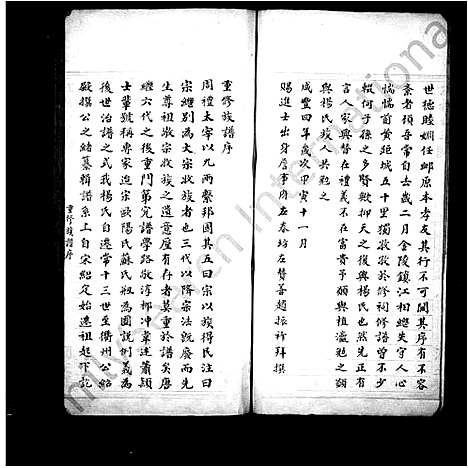 世德睦婣任䘏原本孝友其行不可闕其序有不容
棄者頃吾常自去歲二月金陵鎮江相繼失守人心
惴惴前黄距城五十里獨敦敦於修祠修譜曾不少
輟何子孫之多賢歟抑天之復興楊氏也然先正有
言人家興替在禮義不在富貴予願與植瀛勉之願
與楊氏族人共勉之
咸豐四年歲次甲寅十一月
賜進士出身詹事府左春坊左贊善趙振祚拜撰
重修族譜序
周禮太宰以九兩繫邦國其五曰宗以族得民注曰
宗繼别為大宗收族者也三代以降宗法廢而先
生尊祖敬宗收族之遺意猶有存者莫重於譜矣唐
纒六代之後重門第究譜學路敬淳柳冲韋述蕭穎
士輩號稱專家迨宋歐陽氏蘇氏瓶為圖説例義為
後世治譜之式我楊氏自遷常十三世至衢州公紹
殿撰公之緒纂輯譜系上自宋紹定始遷祖起下訖
重修族譜序